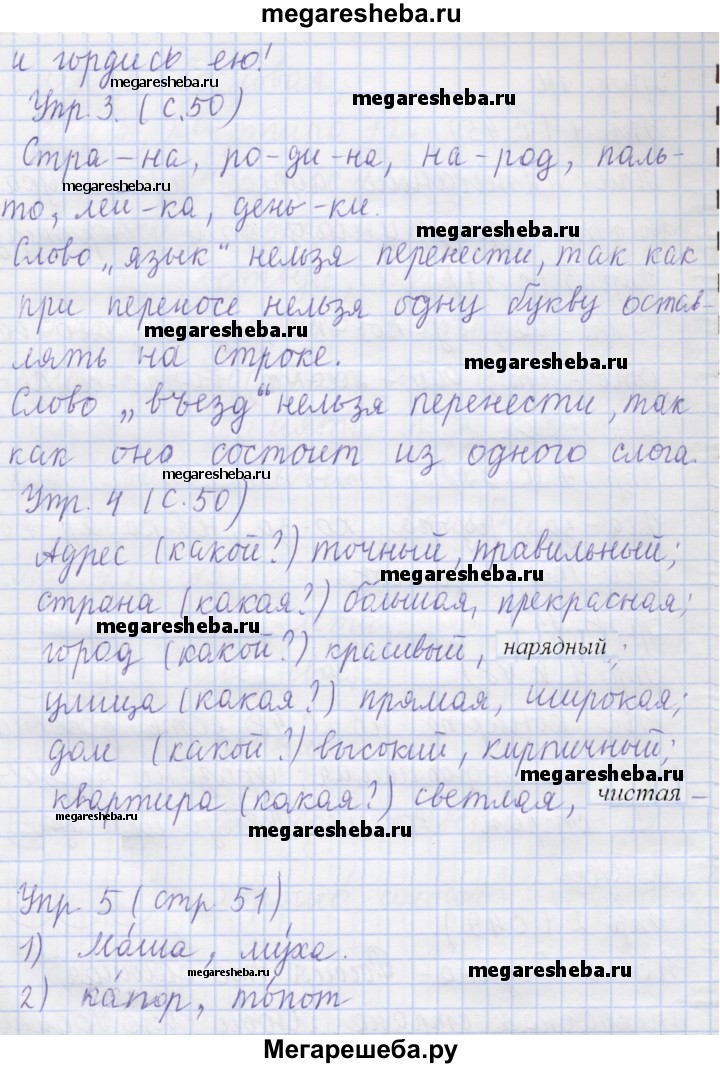 megaresheba.ru
и гордись ею!
megaresheba.ru
Упр. 3. (с. 50)
megaresheba.ru
Стра-на, ро-ди-на, на-род, паль-
megaresheba.ru
то, лей-ка, день-ки.
megaresheba.ru
Слово „язык“ нельзя перенести, так как
при переносе нельзя одну букву остав-
megaresheba.ru
лять на строке.
megaresheba.ru
Слово „въезд“ нельзя перенести, так
как оно состоит из одного слога.
megaresheba.ru
Упр. 4 (с. 50)
Адрес (какой?) точный, правильный;
megaresheba.ru
страна (какая?) большая, прекрасная;
megaresheba.ru
город (какой?) красивый, нарядный;
улица (какая?) прямая, широкая;
дом (какой?) высокий, кирпичный;
megaresheba.ru
квартира (какая?) светлая, чистая –
megaresheba.ru
megaresheba.ru
Упр. 5 (стр. 51)
1) Ма́ша, му́ха.
megaresheba.ru
megaresheba.ru
2) ка́пор, то́пот
Мегарешеба.ру